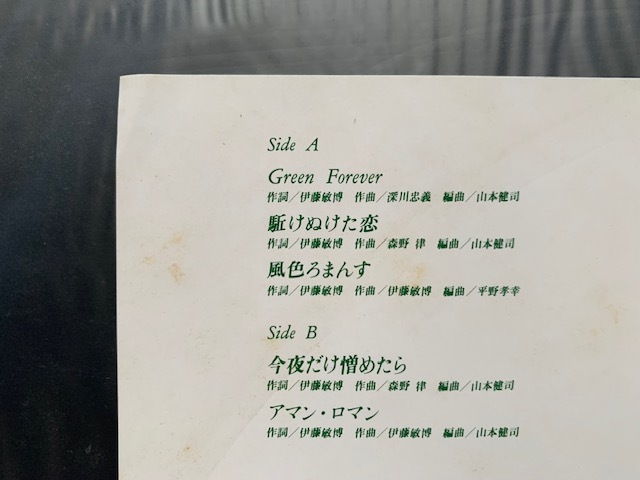 Side A
Green Forever
作詞／伊藤敏博 作曲／深川忠義 編曲／山本健司
駈けぬけた恋
作詞／伊藤敏博 作曲／森野 律 編曲／山本健司
風色ろまんす
作詞／伊藤敏博 作曲／伊藤敏博 編曲／平野孝幸
Side B
今夜だけ憎めたら
作詞／伊藤敏博 作曲／森野 律 編曲／山本健司
アマン・ロマン
作詞／伊藤敏博 作曲／伊藤敏博 編曲／山本健司